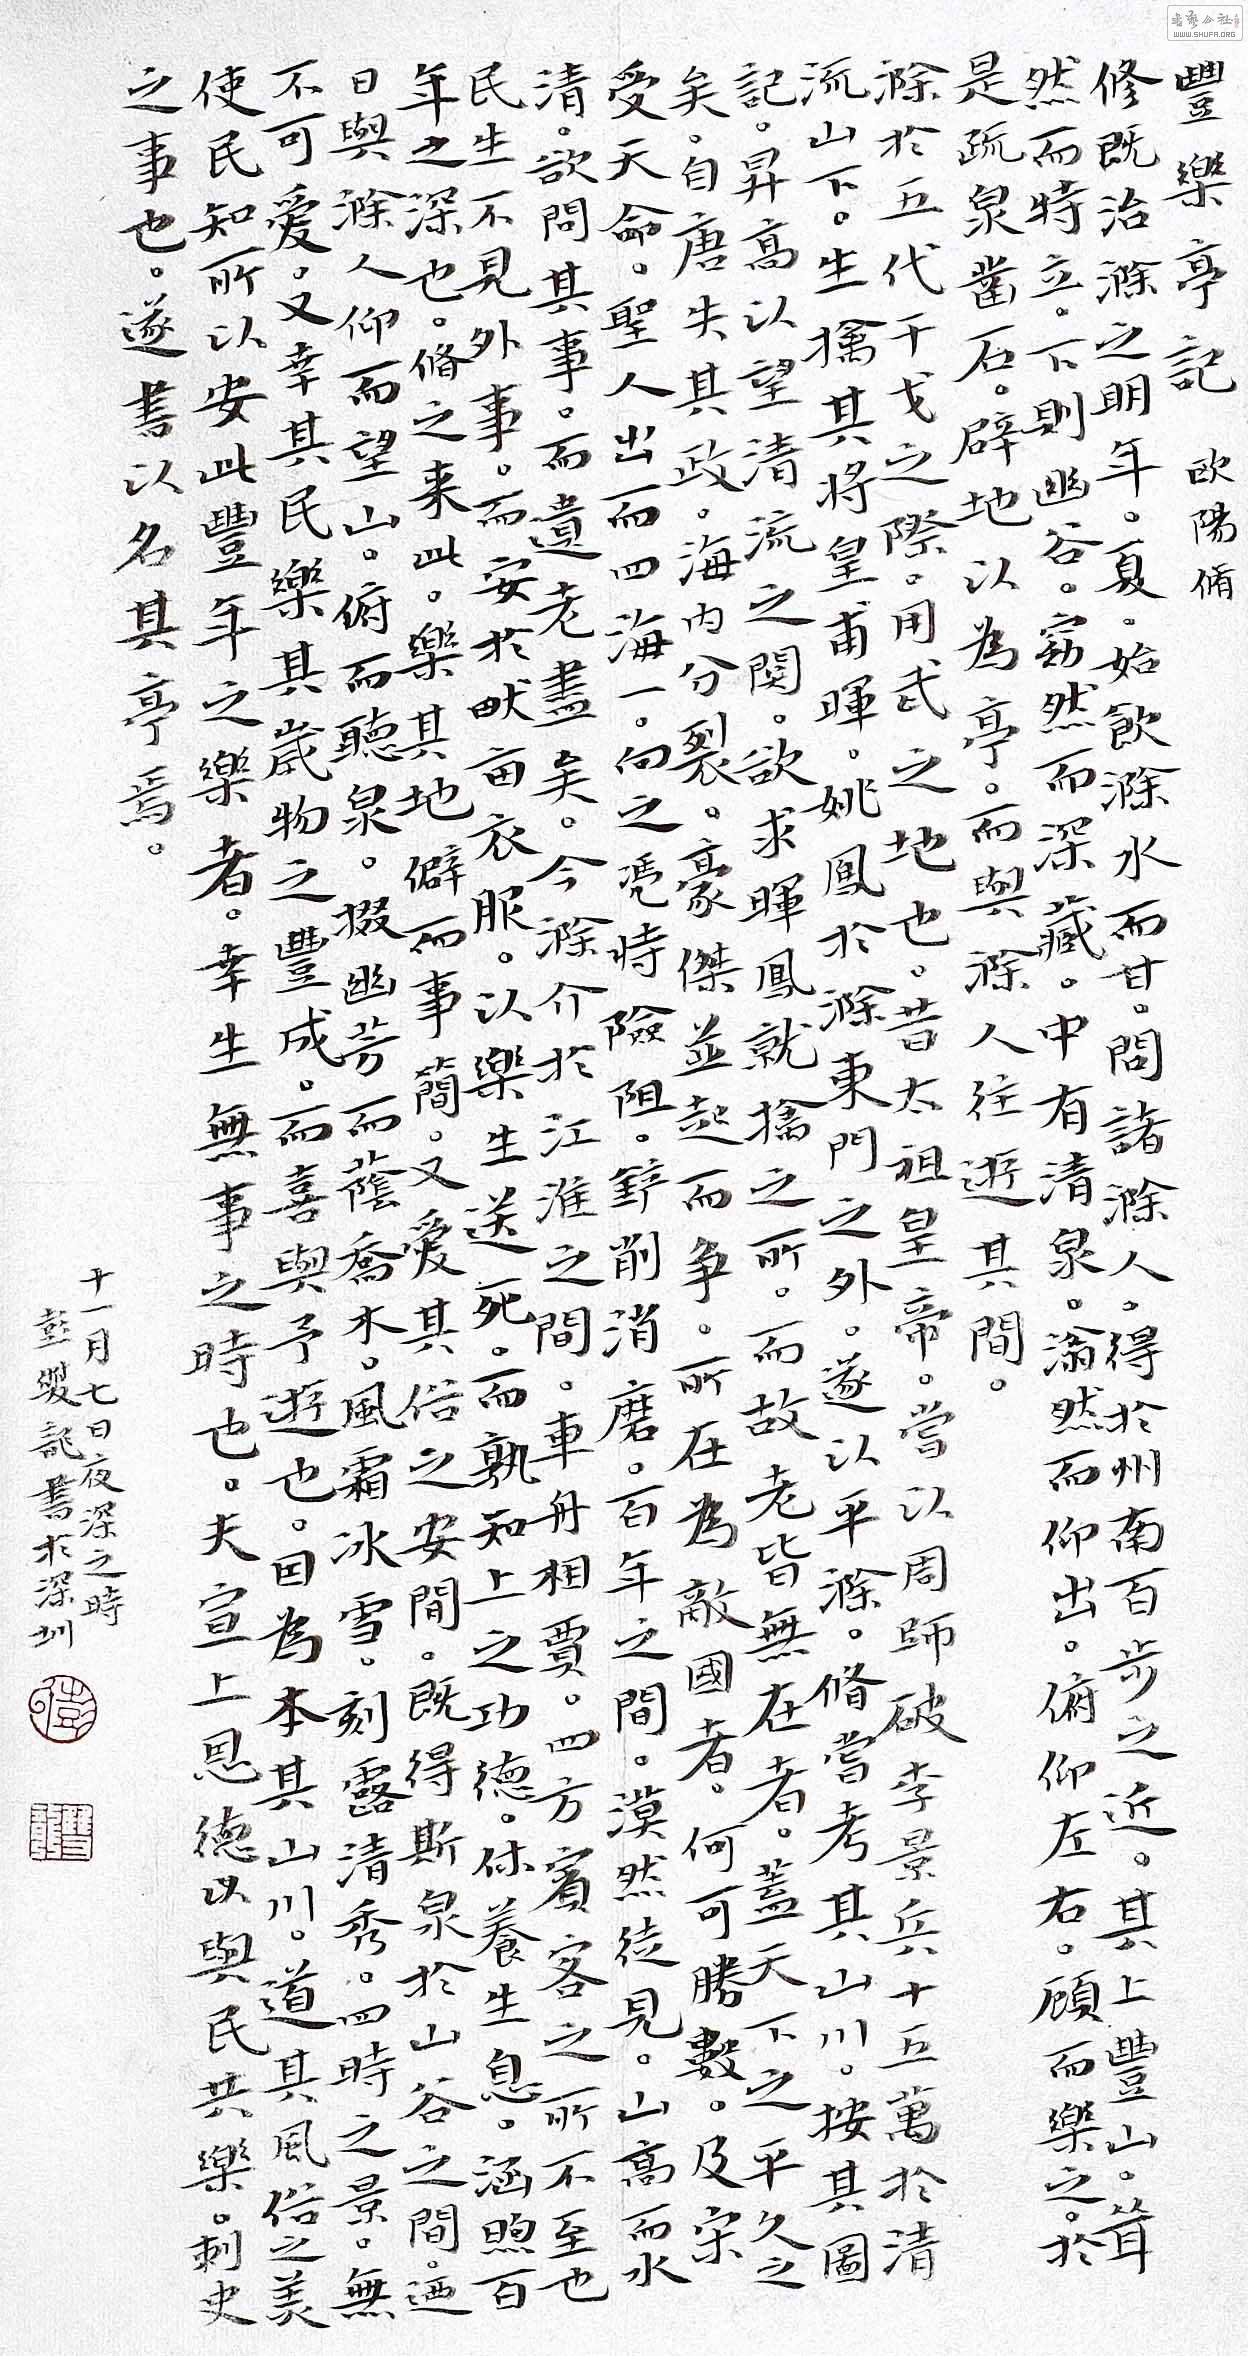 豐樂亭記 歐陽脩
修既治滁之明年。夏。始飲滁水而甘。問諸滁人。得於州南百步之近。其上豐山。聳
然而特立。下則幽谷。窈然而深藏。中有清泉。滃然而仰出。俯仰左右。顧而樂之。於
是疏泉鑿石。辟地以為亭。而與滁人往遊其間。
滁於五代干戈之際。用武之地也。昔太祖皇帝。嘗以周師破李景兵十五萬於清
流山下。生擒其將皇甫暉。姚鳳於滁東門之外。遂以平滁。脩嘗考其山川。按其圖
記。昇高以望清流之関。欲求暉鳳就擒之所。而故老皆無在者。蓋天下之平久之
矣。自唐失其政。海内分裂。豪傑並起而争。所在為敵國者。何可勝數。及宋
受天命。聖人出而四海一。向之憑恃險阻。鏟削消磨。百年之間。漠然徒見。山高而水
清。欲問其事。而遺老盡矣。今滁介於江淮之間。車舟相賈。四方賓客之所不至也
民生不見外事。而安於畎亩衣服。以樂生送死。而孰知上之功德。休養生息。涵煦百
年之深也。脩之来此。樂其地僻而事簡。又愛其俗之安閒。既得斯泉於山谷之間。迺
日與滁人仰而望山。俯而聽泉。掇幽芳而蔭喬木。風霜冰雪。刻露清秀。四時之景。無
不可愛。又幸其民樂其歲物之豐成。而喜與予遊也。因為本其山川。道其風俗之美
使民知所以安此豐年之樂者。幸生無事之時也。夫宣上恩德以與民共樂。刺史
之事也。遂書以名其亭焉。
十一月七日夜深之時
彭雙龍書於深圳
彭
雙龍
書藝公社
WWW.SHUFA.ORG